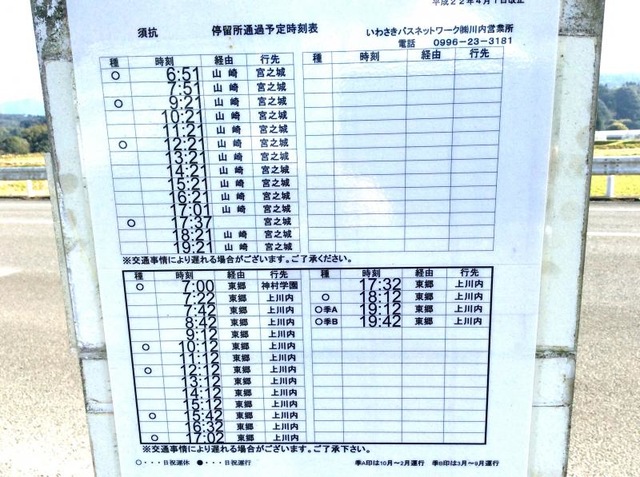 平成22年4月1日改正
須抗 停留所通過予定時刻表 いわさきバスネットワーク㈱川内営業所
電話 0996-23-3181
種 時刻 経由 行先 種 時刻 経由 行先
○ 6:51 山崎 宮之城
7:51 山崎 宮之城
○ 9:21 山崎 宮之城
10:21 山崎 宮之城
11:21 山崎 宮之城
○ 12:21 山崎 宮之城
13:21 山崎 宮之城
14:21 山崎 宮之城
15:21 山崎 宮之城
16:21 山崎 宮之城
17:01 山崎 宮之城
○ 17:37 宮之城
18:21 山崎 宮之城
19:21 山崎 宮之城
※交通事情により遅れる場合がございます。ご了承ください。
種 時刻 経由 行先 種 時刻 経由 行先
○ 7:00 東郷 神村学園 17:32 東郷 上川内
7:22 東郷 上川内 ○ 18:12 東郷 上川内
7:42 東郷 上川内 ○季A 19:12 東郷 上川内
8:42 東郷 上川内 ○季B 19:42 東郷 上川内
9:12 東郷 上川内
○ 10:12 東郷 上川内
11:12 東郷 上川内
○ 12:12 東郷 上川内
13:12 東郷 上川内
14:12 東郷 上川内
15:12 東郷 上川内
○ 15:42 東郷 上川内
16:32 東郷 上川内
○ 17:02 東郷 上川内
※交通事情により遅れる場合がございます。ご了承下さい。
○・・・日祝運休 ●・・・日祝運行 季A印は10月～2月運行 季B印は3月～9月運行